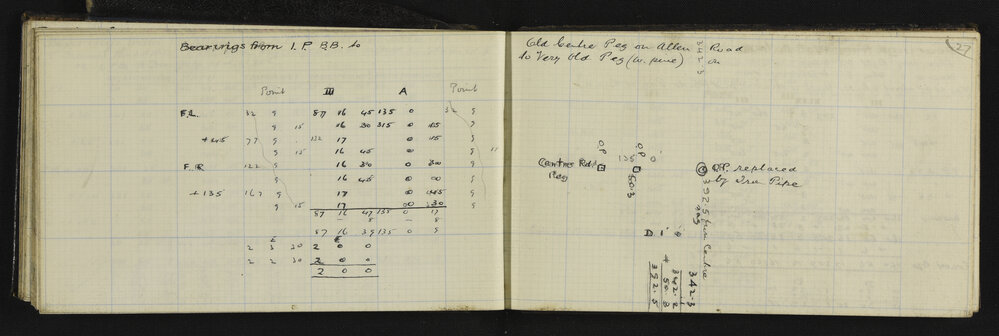 Bearings from I.P. BB. to
Point III A Point
F.L. 32 9 87 16 45 135 0 32 9
9 15 16 30 315 0 45 9
+45 77 9 132 17 0 45 9
9 15 16 45 0 9 15
F.R 122 16 30 0 30 9
9 16 45 0 00 9
+135 167 9 17 0 45 9
9 15 17 00 30 9
87 16 47 135 0 17
- 8 - 8
87 16 39 135 0 9
2 3 30 2 0 0
2 2 30 2 0 0
2 0 0
27
Old Centre Peg on Allen Road
to Very Old Peg (w. pine) on
342.5
O.P.
O.P.
135 0
Centre Rd
Peg
50.3
O.P. replaced
by Iron Pipe
392.5 from Centre
D. 1
342.2
+ 50.3
392.5
342.3